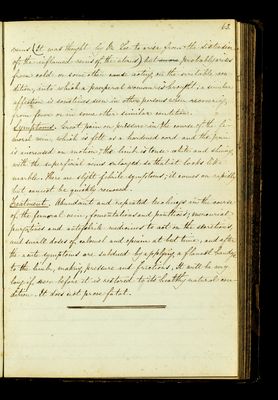 63.
veins (It was thought by Dr Lee to arise from the distension
of the inflamed veins of the uterus) but more probably arises
from cold or some other cause acting on the irritable con-
dition into which a puerperal woman is brought, a similar
affection is sometimes seen in other persons when recovering
from fever or in some other similar condition.
Symptoms. Great pain on pressure in the course of the fe-
moral vein, which is felt as a hardened cord and the pain
is increased on motion, the limb is tense white and shining
with the superficial veins enlarged so that it looks like
marble. There are slight febrile symptoms; it comes on rapidly
but cannot be quickly removed.
Treatment. Abundant and repeated leechings in the course
of the femoral vein, fomentations and poultices; mercurial
purgatives and antifebrile medicines to act on the secretions,
and small doses of calomel and opium at bed time, and after
the acute symptoms are subdued by applying a flannel bandage
to the limb, making pressure and frictions. It will be very
long if ever before it is restored to its healthy natural con-
dition. It does not prove fatal.